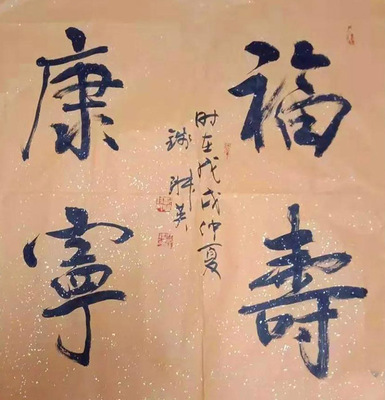 福壽
康寧
时在戊戌仲夏